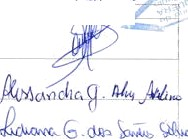 Alessandra G. Alves Avelino
Luciana G. dos Santos Silva